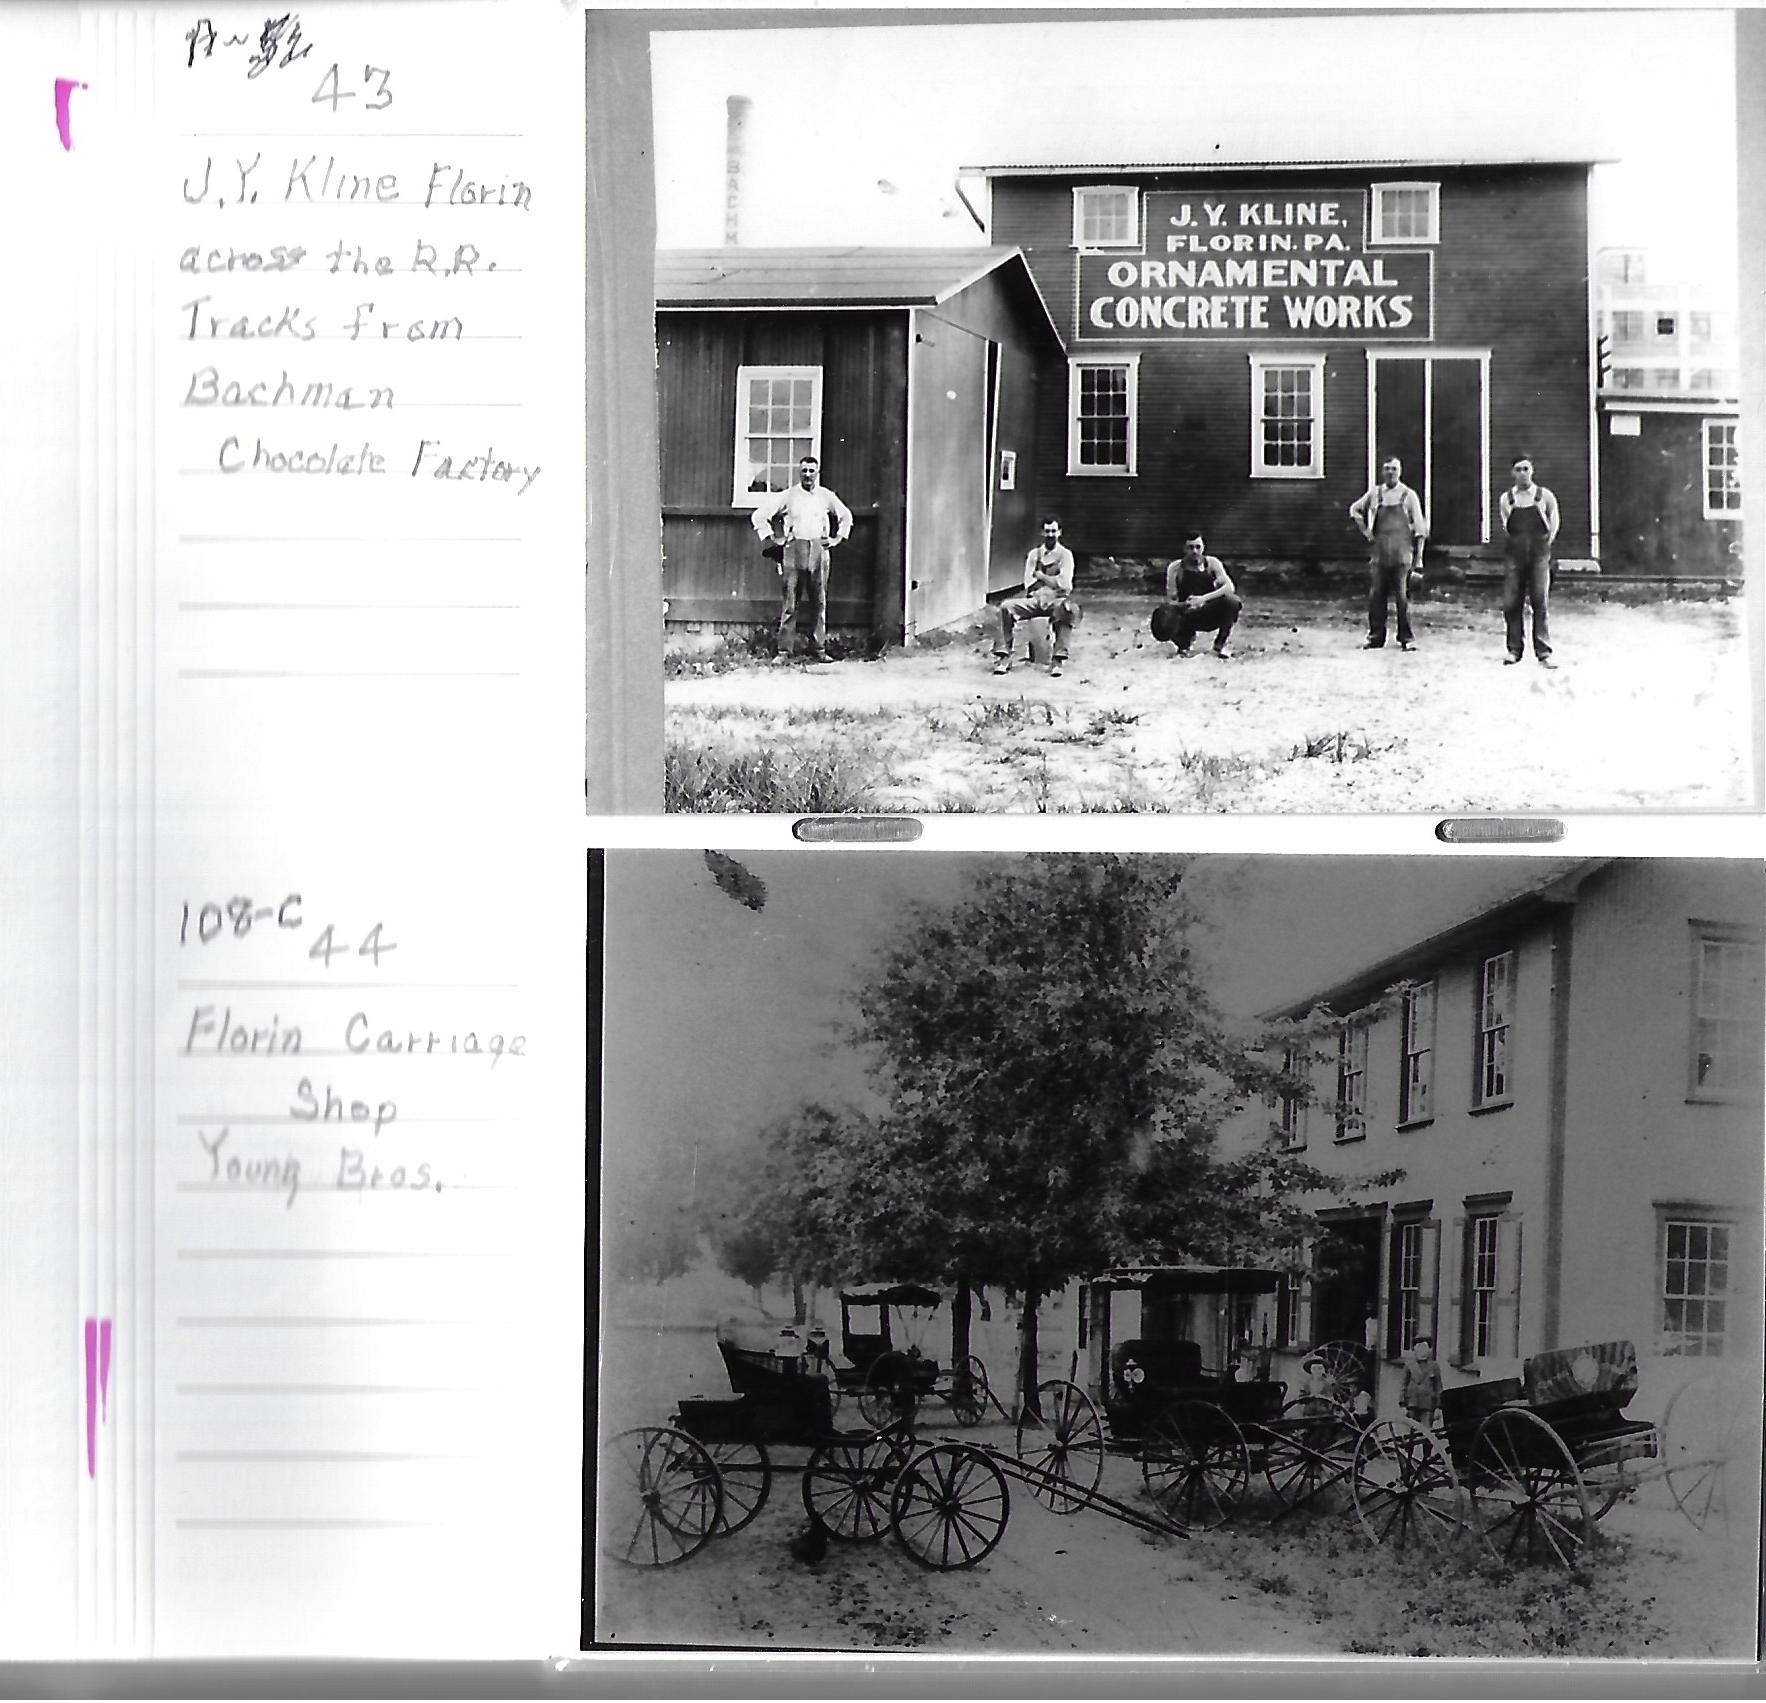 43
J.Y. Kline Florin
across the R.R.
Tracks from
Bachman
Chocolate Factory
BACHM
J.Y. KLINE,
FLORIN. PA.
ORNAMENTAL
CONCRETE WORKS
108-C
44
Florin Carriage
Shop
Young Bros.